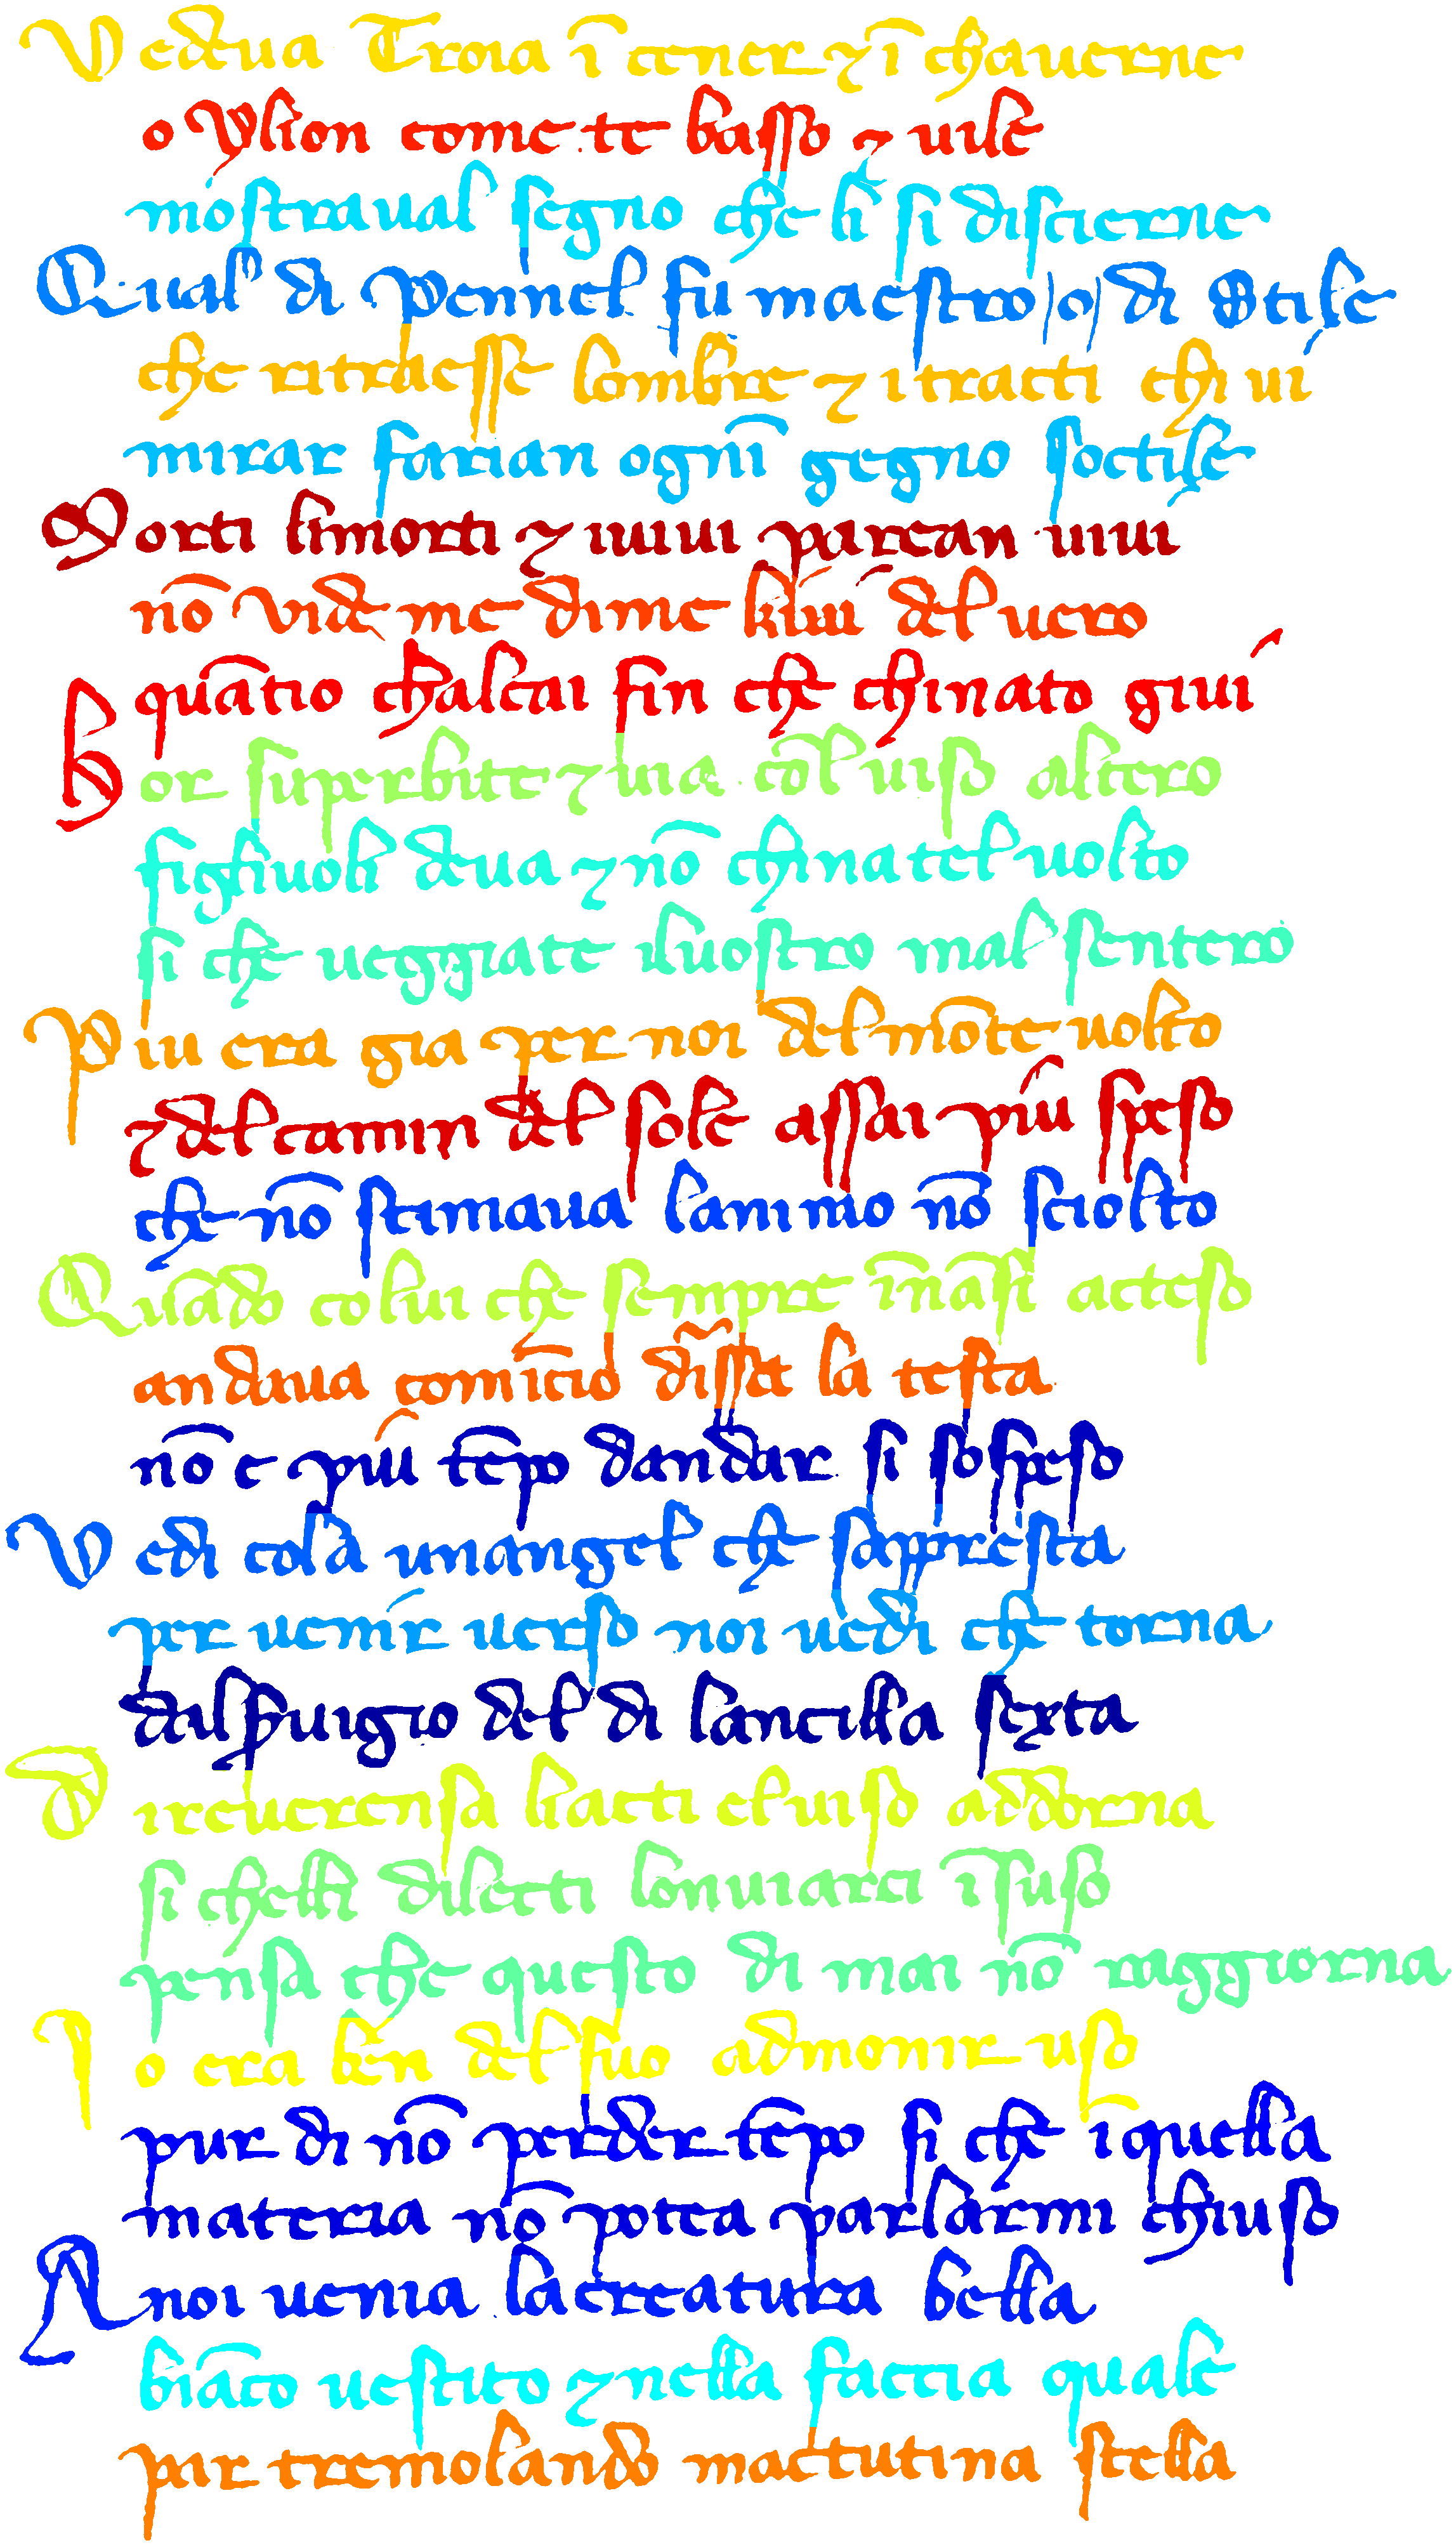 Vedeua Troia ī cener ⁊ ī chauerne
o ylion come te basso ⁊ uile
mostraual segno che li si discierne
Qual di pennel fu maestro /o/ di stile
che ritraesse lombre ⁊ i tracti chi ui
mirar farian ognī gegno soctile
Morti li morti ⁊ iuiui parean uiui
nō vide me di me kiui del uero
quātio chalcai fin che chinato giui
hor superbite ⁊ uia cōl uiso altero
figliuoli deua ⁊ nō chinatel uolto
si che ueggiate iluostro mal sentero
Piu era gia per noi del mōte uolto
⁊ del camin del sole assai piu speso
che nō stimaua lanimo nō sciolto
Quādo colui che sempre īnāsi acteso
andaua comīcio dissā la testa
nō e piu tēpo dandar si sospeso
Vedi cola unangel che sappresta
per uenir uerso noi uedi che torna
dal seruigio del di lancilla sexta
Di reuerensa li acti el uiso addorna
si chelli dilecti lonuiarci īsuso
pensa che questo di mai nō raggiorna
Io era ben del suo admonir uso
pur di nō perder tēpo si che i quella
materia nō potea parlarmi chiuso
A noi uenia la creatura bella
biāco uestito ⁊ nella faccia quale
par tremolando mactutina stella